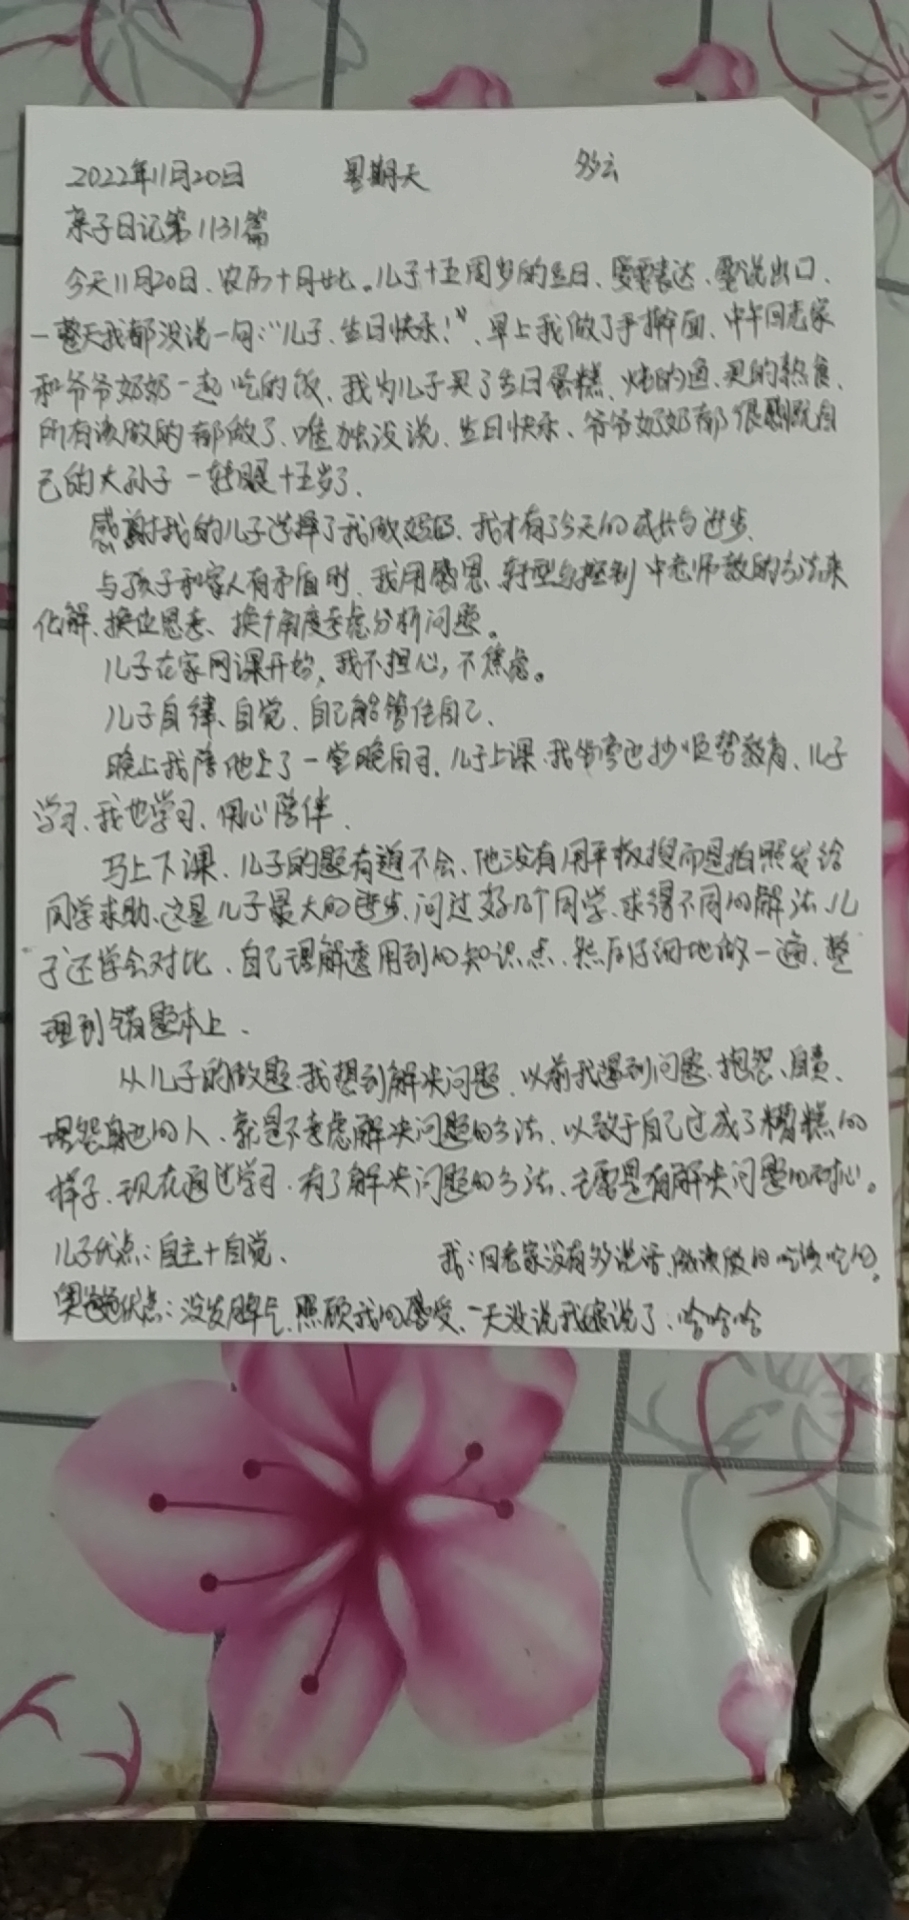 2022年11月20日 星期天 多云
亲子日记第1131篇
今天11月20日、农历十月廿七。儿子十五周岁的生日、爱要表达、要说出口、
一整天我都没说一句:“儿子、生日快乐!”、早上我做了手擀面、中午回老家
和爷爷奶奶一起吃的饭、我为儿子买了生日蛋糕、炖的鱼、买的熟食、
所有该做的都做了、唯独没说、生日快乐、爷爷奶奶都很感慨自
己的大孙子一转眼十五岁了、
感谢我的儿子选择了我做妈妈、我才有了今天的成长与进步、
与孩子和家人有矛盾时、我用感恩、转型与控制中老师教的方法来
化解、换位思考、换个角度考虑分析问题。
儿子在家网课开始,我不担心,不焦虑。
儿子自律、自觉、自己能管住自己、
晚上我陪他上了一堂晚自习、儿子上课、我在旁边抄顺势教育、儿子
学习、我也学习、用心陪伴、
马上下课、儿子的题有道不会、他没有用平板搜而是拍照发给
同学求助、这是儿子最大的进步、问过好几个同学、求得不同的解法、儿
子还学会对比、自己理解要用到的知识点、然后仔细地做一遍、整
理到错题本上、
从儿子的做题我想到解决问题、以前我遇到问题、抱怨、自责、
埋怨其他的人、就是不考虑解决问题的方法、以致于自己过成了糟糕的
样子、现在通过学习、有了解决问题的方法、主要是有解决问题的耐心。
儿子优点:自主十自觉、 我:回老家没有多说话、做该做的吃该吃的。
爸爸优点:没发脾气、照顾我的感受、一天没说我 说了、哈哈哈